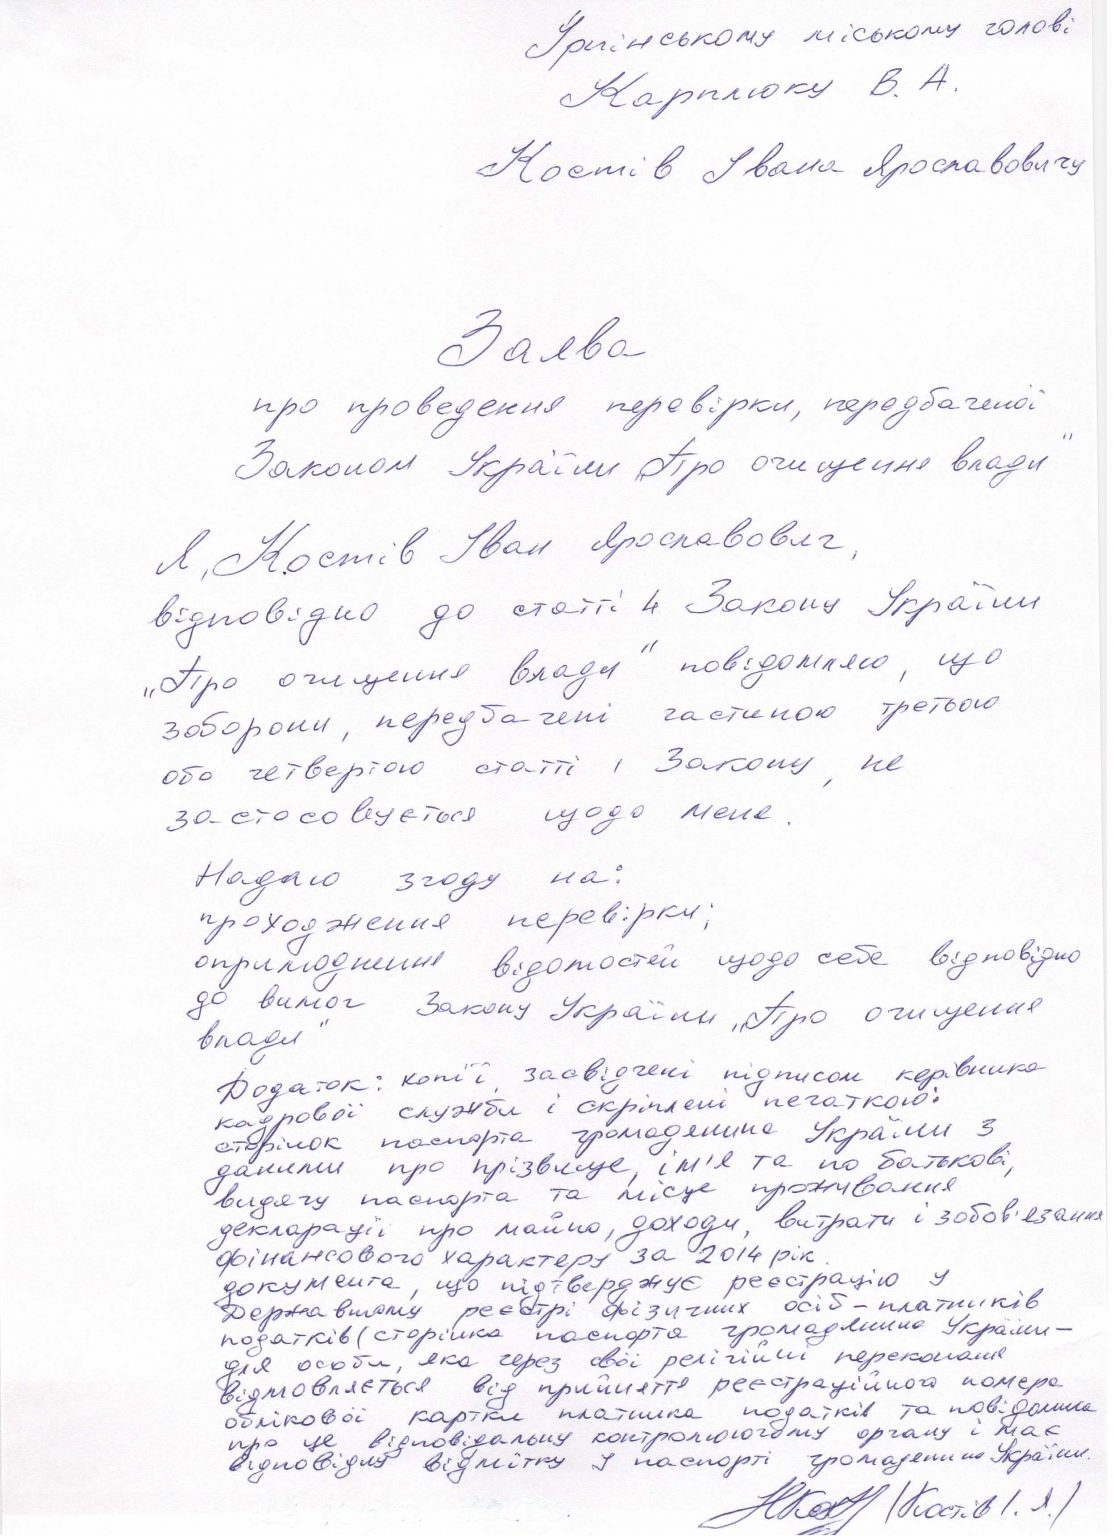 Ірпінському міському голові
Карплюку В. А.
Костів Івана Ярославовичу
Заява
про проведення перевірки, передбаченої
Законом України „Про очищення влади"
Я, Костів Іван Ярославович,
відповідно до статті 4 Закону України
„Про очищення влади" повідомляю, що
заборони, передбачені частиною третьою
або четвертою статті 1 Закону, не
застосовується щодо мене.
Надаю згоду на:
проходження перевірки;
оприлюднення відомостей щодо себе відповідно
до вимог Закону України „Про очищення
влади"
Додаток: копії, засвідчені підписом керівника
кадрової служби і скріплені печаткою:
сторінок паспорта громадянина України з
даними про прізвище, ім'я та по батькові,
видачу паспорта та місце проживання
декларації про майно, доходи, витрати і зобов'язання
фінансового характеру за 2014 рік.
документа, що підтверджує реєстрацію у
Державному реєстрі фізичних осіб – платників
податків (сторінка паспорта громадянина України –
для особи, яка через свої релігійні переконання
відмовляється від прийняття реєстраційного номера
облікової картки платника податків та повідомила
про це відповідальну контролюючому органу і має
відповідну відмітку у паспорті громадянина України.
(Костів І. Я.)